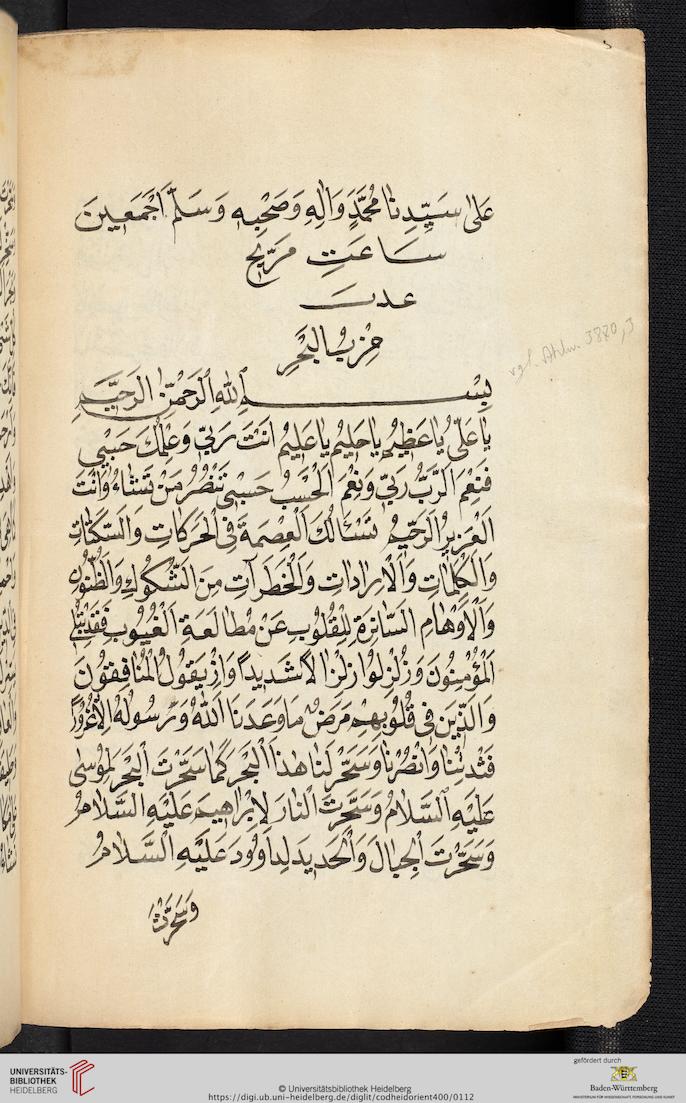 عَلَى سَيِّدِنَا مُحَمَّدٍ وَآلِهِ وَصَحْبِهِ وَسَلَّمَ اَجْمَعِينَ
سَاعَتِ مَرِّيخ
عدت
حِزْبُ الْبَحْرِ
بِسْمِ اللّٰهِ الرَّحْمٰنِ الرَّحِيمِ
يَا عَلِيُّ يَا عَظِيمُ يَا حَلِيمُ يَا عَلِيمُ اَنْتَ رَبِّي وَعِلْمُكَ حَسْبِي
فَنِعْمَ الرَّبُّ رَبِّي وَنِعْمَ الْحَسْبُ حَسْبِي تَنْصُرُ مَنْ تَشَاءُ وَاَنْتَ
الْعَزِيزُ الرَّحِيمُ نَسْئَالُكَ الْعِصْمَةَ فِي الْحَرَكَاتِ وَالسَّكَنَاتِ
وَالْكَلِمَاتِ وَالْاِرَادَاتِ وَالْخَطَرَآتِ مِنَ الشُّكُوكِ وَالظُّنُونِ
وَالْاَوْهَامِ السَّاتِرَةِ لِلْقُلُوبِ عَنْ مُطَالَعَةِ الْغُيُوبِ فَقَدِ ابْتُلِيَ
الْمُؤْمِنُونَ وَزُلْزِلُوا زِلْزَالًا شَدِيدًا وَاِذْ يَقُولُ الْمُنَافِقُونَ
وَالَّذِينَ فِي قُلُوبِهِمْ مَرَضٌ مَا وَعَدَنَا اللّٰهُ وَرَسُولُهُ اِلَّا غُرُورًا
فَثَبِّتْنَا وَانْصُرْنَا وَسَخِّرْ لَنَا هٰذَا الْبَحْرَ كَمَا سَخَّرْتَ الْبَحْرَ لِمُوسٰى
عَلَيْهِ السَّلَامُ وَسَخَّرْتَ النَّارَ لِاِبْرَاهِيمَ عَلَيْهِ السَّلَامُ
وَسَخَّرْتَ الْجِبَالَ وَالْحَدِيدَ لِدَاوُودَ عَلَيْهِ السَّلَامُ
وَسَخَّرْتَ
vgl. Ahlw. 3880,3
UNIVERSITÄTS-
BIBLIOTHEK
HEIDELBERG
© Universitätsbibliothek Heidelberg
https://digi.ub.uni-heidelberg.de/diglit/codheidorient400/0112
gefördert durch
Baden-Württemberg
MINISTERIUM FÜR WISSENSCHAFT, FORSCHUNG UND KUNST